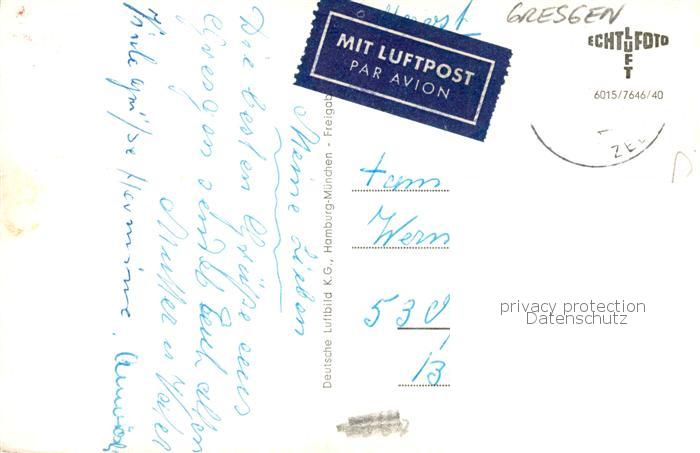 Luftpost
GRESGEN
MIT LUFTPOST
PAR AVION
ECHT LUFT FOTO
6015/7646/40
ZELL
Meine Lieben
Die besten Grüße aus
Gresgen sendet Euch allen
Mutter u Vater
Viele Grüße Hermine.
Deutsche Luftbild K.G., Hamburg-München - Freigab
Fam
Wern
530
B
privacy protection
Datenschutz